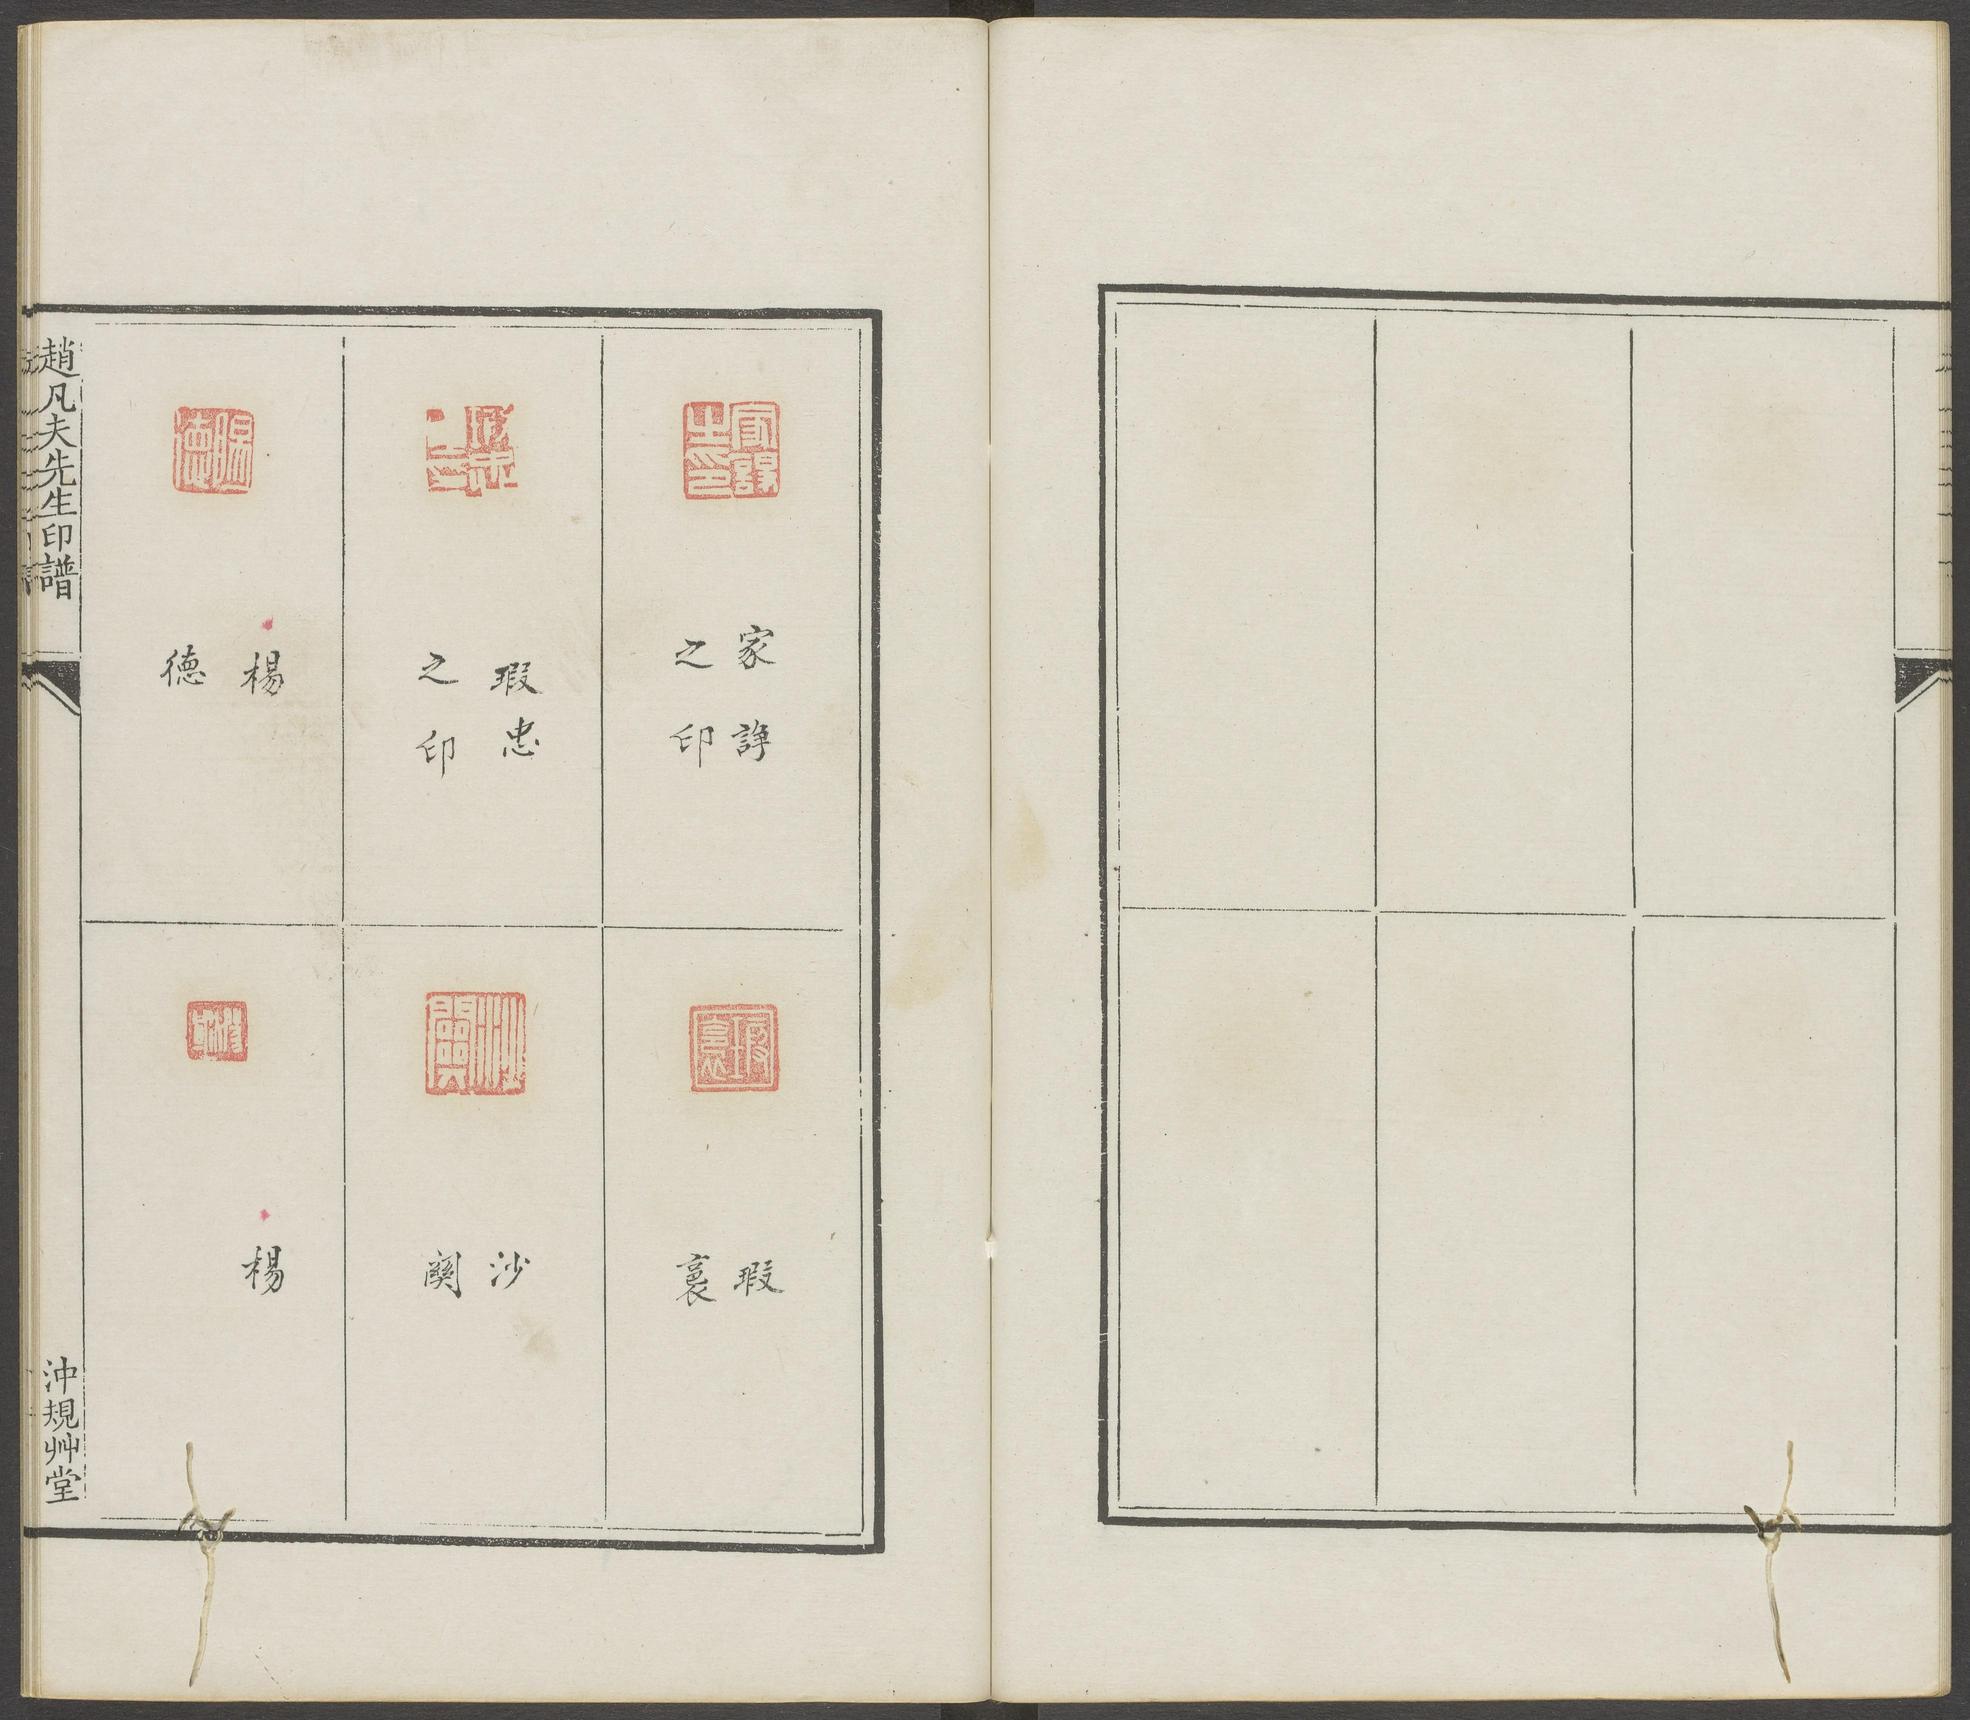 家諍
之印
瑕忠
之印
楊
德
瑕
裏
沙
闋
楊
趙凡夫先生印譜
沖規艸堂